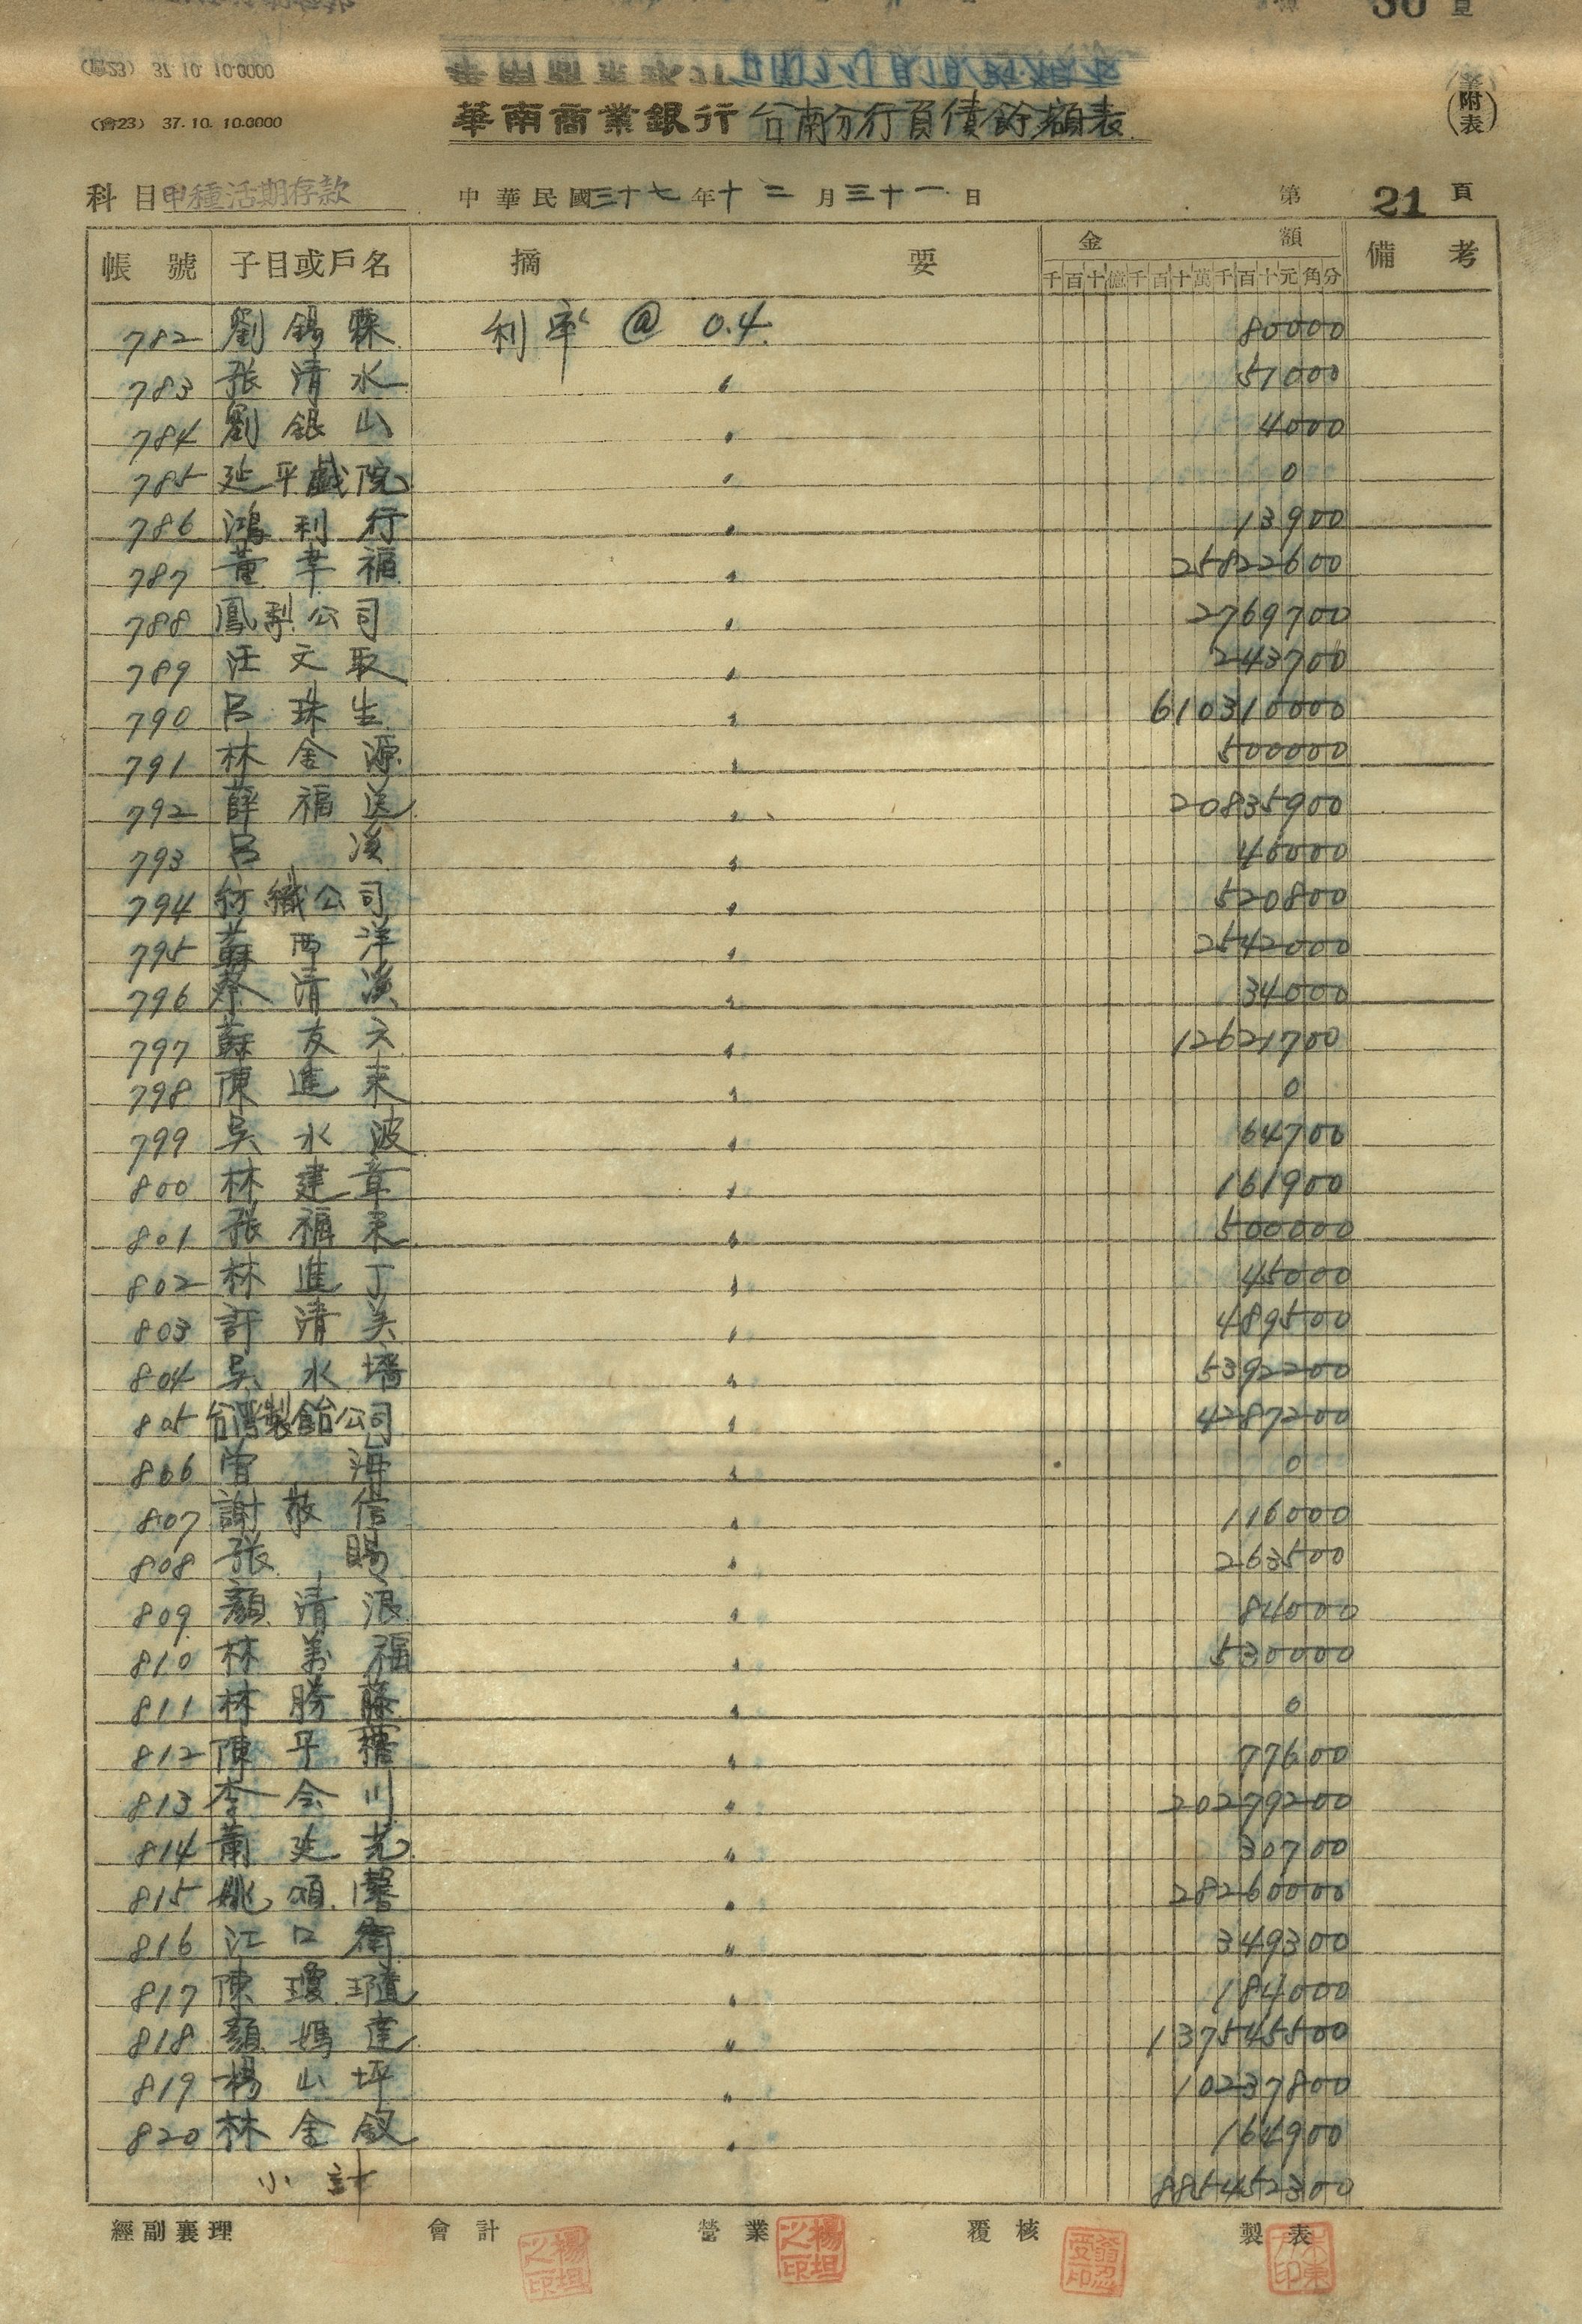 (會23) 37.10. 10.0000
華南商業銀行台南分行負債餘額表
(附表)
科目 甲種活期存款 中華民國三十七年十二月三十一日 第 21 頁
帳號 子目或戶名 摘要 金額 備考
千百十億千百十萬千百十元角分
782 劉錫霖 利率 @ 0.4. 80000
783 張清水 〃 51000
784 劉銀山 〃 4000
785 延平戲院 〃 0
786 鴻利行 〃 13900
787 董幸福 〃 25822600
788 鳳梨公司 〃 2769700
789 汪文取 〃 243700
790 呂珠生 〃 610310000
791 林金源 〃 500000
792 薛福送 〃 20835900
793 呂漢 〃 46000
794 紡織公司 〃 520800
795 蘇西洋 〃 2542000
796 蔡清漢 〃 34000
797 蘇友 〃 12621700
798 陳進來 〃 0
799 吳水波 〃 64700
800 林建章 〃 161900
801 張福來 〃 500000
802 林進丁 〃 45000
803 許清美 〃 489500
804 吳水 〃 5392200
805 台灣製飴公司 〃 4287200
806 曾海 〃 0
807 謝敬信 〃 116000
808 張賜 〃 263500
809 顏清浪 〃 84000
810 林萬福 〃 530000
811 林勝藤 〃 0
812 陳平 〃 77600
813 李金川 〃 20279200
814 蕭延光 〃 30700
815 姚頌馨 〃 28260000
816 江口衛 〃 349300
817 陳瓊 〃 184000
818 顏媽達 〃 137545500
819 楊山坪 〃 10237800
820 林金釵 〃 164900
小計 885452300
經副襄理 會計 營業 覆核 製表
楊坦之印 楊坦之印